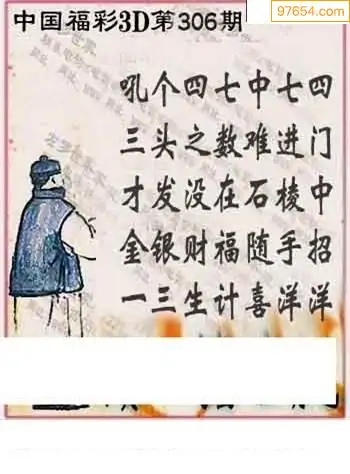 97654.com
中国福彩3D第306期
吼个四七中七四
三头之数难进门
才发没在石棱中
金银财福随手招
一三生计喜洋洋